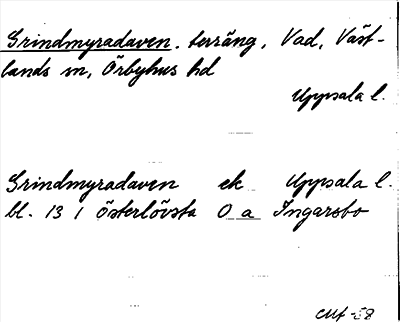 Grindmyradaven. terräng, Vad, Väst-
lands sn, Örbyhus hd
Uppsala l.
Grindmyradaven ek Uppsala l.
bl. 13 I Österlövsta O a Ingarsbo
-58